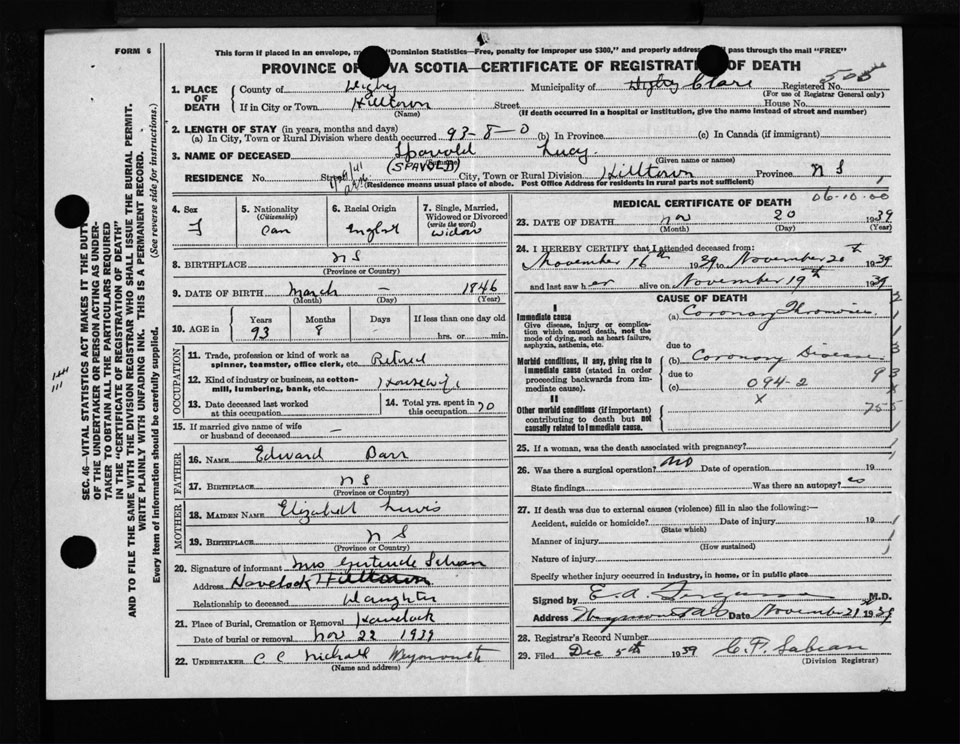 FORM 6
This form if placed in an envelope, "Dominion Statistics—Free, penalty for improper use $300," and properly address pass through the mail "FREE"
PROVINCE OF VA SCOTIA—CERTIFICATE OF REGISTRATION OF DEATH
505
1. PLACE OF DEATH
County of Digby
Municipality of Digby Clare
Registered No.
(For use of Registrar General only)
If in City or Town Hilltown
Street
House No.
(Name)
(If death occurred in a hospital or institution, give the name instead of street and number)
2. LENGTH OF STAY (in years, months and days)
(a) In City, Town or Rural Division where death occurred 93-8-0 (b) In Province (c) In Canada (if immigrant)
3. NAME OF DECEASED Spavold Lucy
(SPAVOLD)
(Surname) (Given name or names)
RESIDENCE No. St. City, Town or Rural Division Hilltown Province N S
(Residence means usual place of abode. Post Office Address for residents in rural parts not sufficient)
4. Sex
F
5. Nationality
(Citizenship)
Can
6. Racial Origin
English
7. Single, Married, Widowed or Divorced
(write the word)
Widow
8. BIRTHPLACE N S
(Province or Country)
9. DATE OF BIRTH March – 1846
(Month) (Day) (Year)
10. AGE in
Years Months Days If less than one day old
93 8 - hrs. or min.
OCCUPATION
11. Trade, profession or kind of work as spinner, teamster, office clerk, etc. Retired
12. Kind of industry or business, as cotton-mill, lumbering, bank, etc. Housewife
13. Date deceased last worked at this occupation
14. Total yrs. spent in this occupation 70
15. If married give name of wife or husband of deceased —
FATHER
16. NAME Edward Barr
17. BIRTHPLACE N S
(Province or Country)
MOTHER
18. MAIDEN NAME Elizabeth Lewis
19. BIRTHPLACE N S
(Province or Country)
20. Signature of informant Mrs Gertrude Sabean
Address Havelock Hilltown
Relationship to deceased Daughter
21. Place of Burial, Cremation or Removal Havelock
Date of burial or removal Nov 22 1939
22. UNDERTAKER C C Weymouth
(Name and address)
MEDICAL CERTIFICATE OF DEATH
06-10-00
23. DATE OF DEATH Nov 20 1939
(Month) (Day) (Year)
24. I HEREBY CERTIFY that I attended deceased from:
November 16th 1939 to November 20th 1939
and last saw her alive on November 19th 1939
CAUSE OF DEATH
I
Immediate cause
Give disease, injury or complication which caused death, not the mode of dying, such as heart failure, asphyxia, asthenia, etc.
(a) Coronary Thrombosis
due to
Morbid conditions, if any, giving rise to immediate cause (stated in order proceeding backwards from immediate cause).
(b) Coronary Disease
due to
(c)
094-2
x
93
755
II
Other morbid conditions (if important) contributing to death but not causally related to immediate cause.
25. If a woman, was the death associated with pregnancy?
26. Was there a surgical operation? No Date of operation 19
State findings Was there an autopsy? no
27. If death was due to external causes (violence) fill in also the following:—
Accident, suicide or homicide? Date of injury 19
(State which)
Manner of injury
(How sustained)
Nature of injury
Specify whether injury occurred in industry, in home, or in public place
Signed by E. A. Ferguson M.D.
Address Date November 21st 1939
28. Registrar's Record Number
29. Filed Dec 5th 1939 C. F. Sabean
(Division Registrar)
SEC. 46—VITAL STATISTICS ACT MAKES IT THE DUTY
OF THE UNDERTAKER OR PERSON ACTING AS UNDER-
TAKER TO OBTAIN ALL THE PARTICULARS REQUIRED
IN THE "CERTIFICATE OF REGISTRATION OF DEATH"
AND TO FILE THE SAME WITH THE DIVISION REGISTRAR WHO SHALL ISSUE THE BURIAL PERMIT.
WRITE PLAINLY WITH UNFADING INK. THIS IS A PERMANENT RECORD.
Every item of information should be carefully supplied. (See reverse side for instructions.)